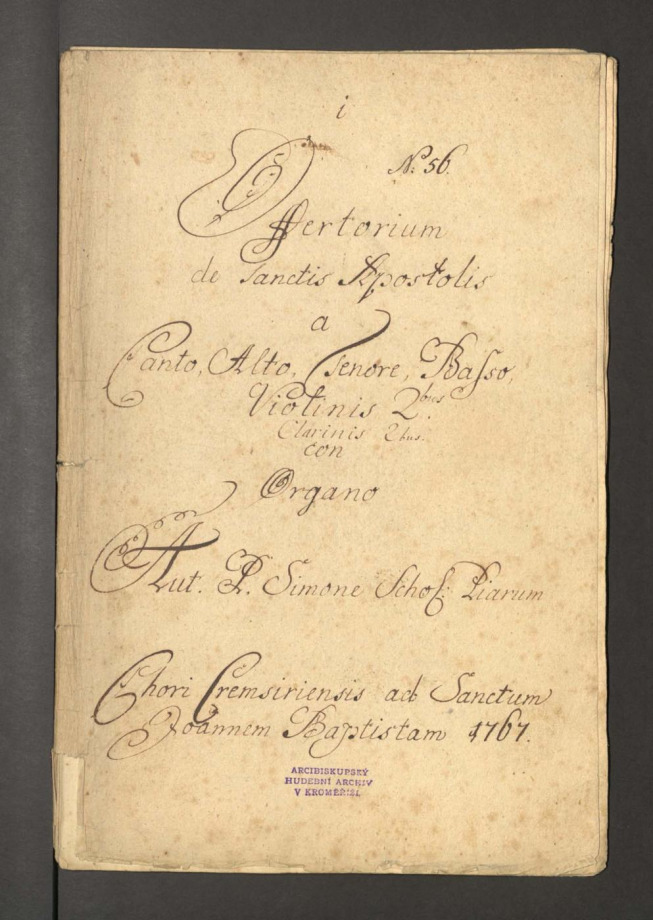 i
No: 56.
Offertorium
de Sanctis Apostolis
a
Canto, Alto, Tenore, Basso,
Violinis 2bus.
Clarinis 2bus.
con
Organo
Aut. P. Simone Schol: Piarum
Chori Cremsiriensis ad Sanctum
Joannem Baptistam 1767.
ARCIBISKUPSKÝ
HUDEBNÍ ARCHIV
V KROMĚŘÍŽI.